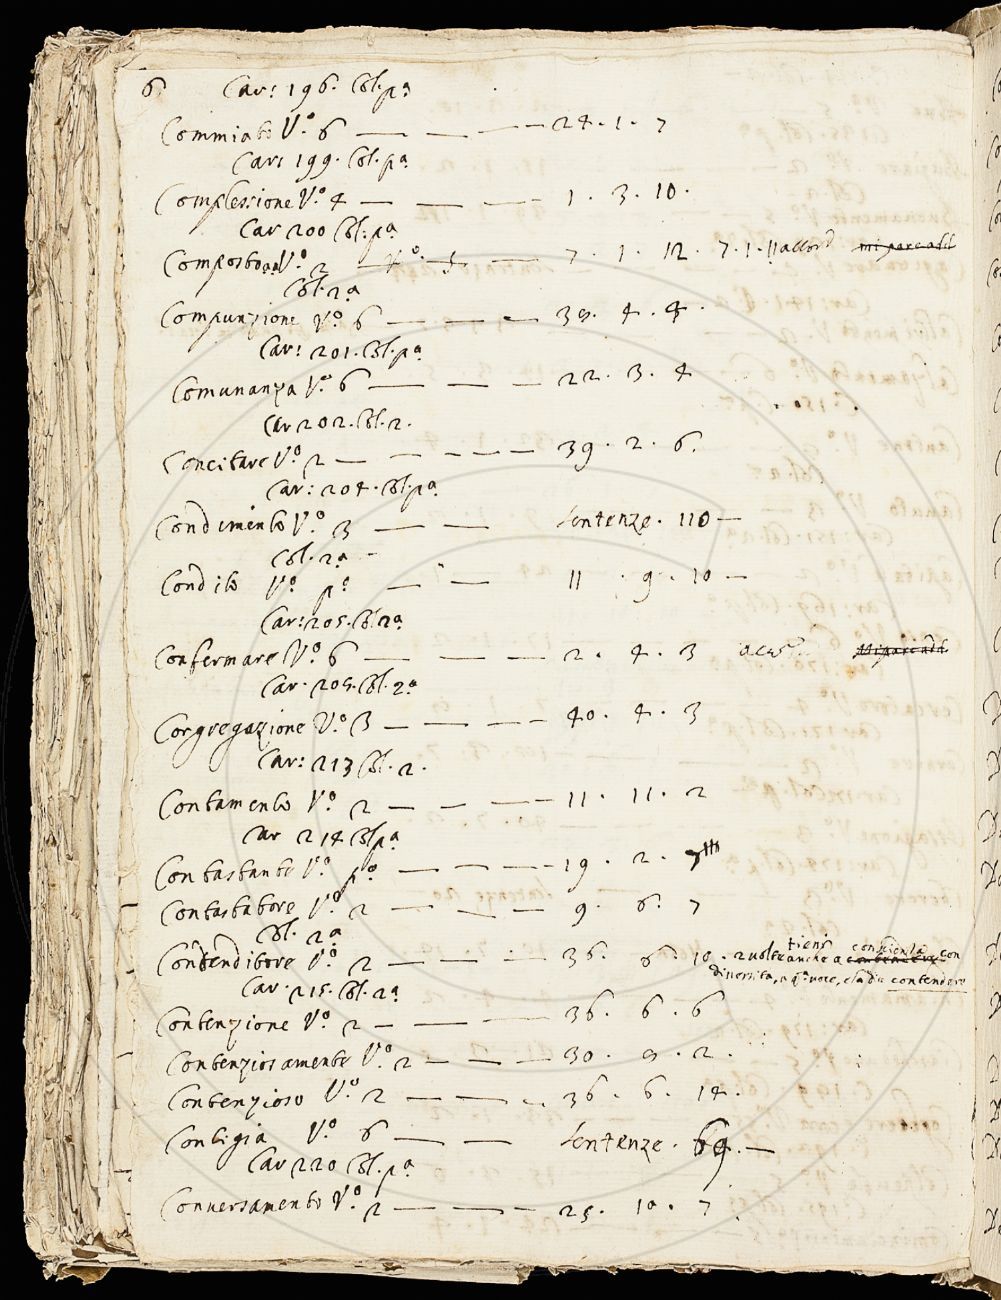 6 Car: 196. Col. pa
Commiato V.o 6 — — — 24. 1. 7
Cars 199. Col. pa
Complessione V.o 4 — — — 1. 3. 10.
Car 200 Col. pa
Composto V.o 2 — — 7. 1. 12. 7. 1. 11 accord mi pare adil
Col. 2a
Compunzione V.o 6 — — — 39. 4. 4.
Car: 201. Col. pa
Comunanza V.o 6 — — — 22. 3. 4
Car 202. Col. 2.
Concitare V.o 2 — — — — — 39. 2. 6.
Car: 204. Col. pa
Condimento V.o 3 — — Sentenze. 110 —
Col. 2a —
Condito V.o po — — 11. 9. 10 —
Car: 205. Col. 2a
Confermare V.o 6 — — — 2. 4. 3
Car. 205. Col. 2a
Congregazione V.o 3 — — — — 40. 4. 3
Car: 213 Col. 2.
Contamento V.o 2 — — — — 11. 11. 2
Car 214 Col pa
Contastante V.o po — — — — 19. 2. 7
Contastatore V.o 2 — — — 9. 6. 7
Col. 2a
Contenditore V.o 2 — — — — 36. 6. 10. 2 volte anche a contendere con
tiene conscienza
diversità, a qa voce, cioè contendere
Car. 215. Col. 2a
Contenzione V.o 2 — — — — 36. 6. 6
Contenziosamente V.o 2 — — — 30. 9. 2.
Contenzioso V.o 2 — — — 36. 6. 14.
Contigia V.o 6 — — Sentenze. 64. —
Car 220 Col. pa
Conversamento V.o 2 — — — 25. 10. 7.